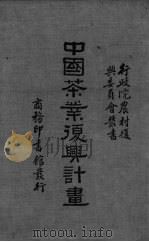 行政院農村復
興委員會叢書
中國茶業復興計畫
商務印書館發行
www.mtoou.info